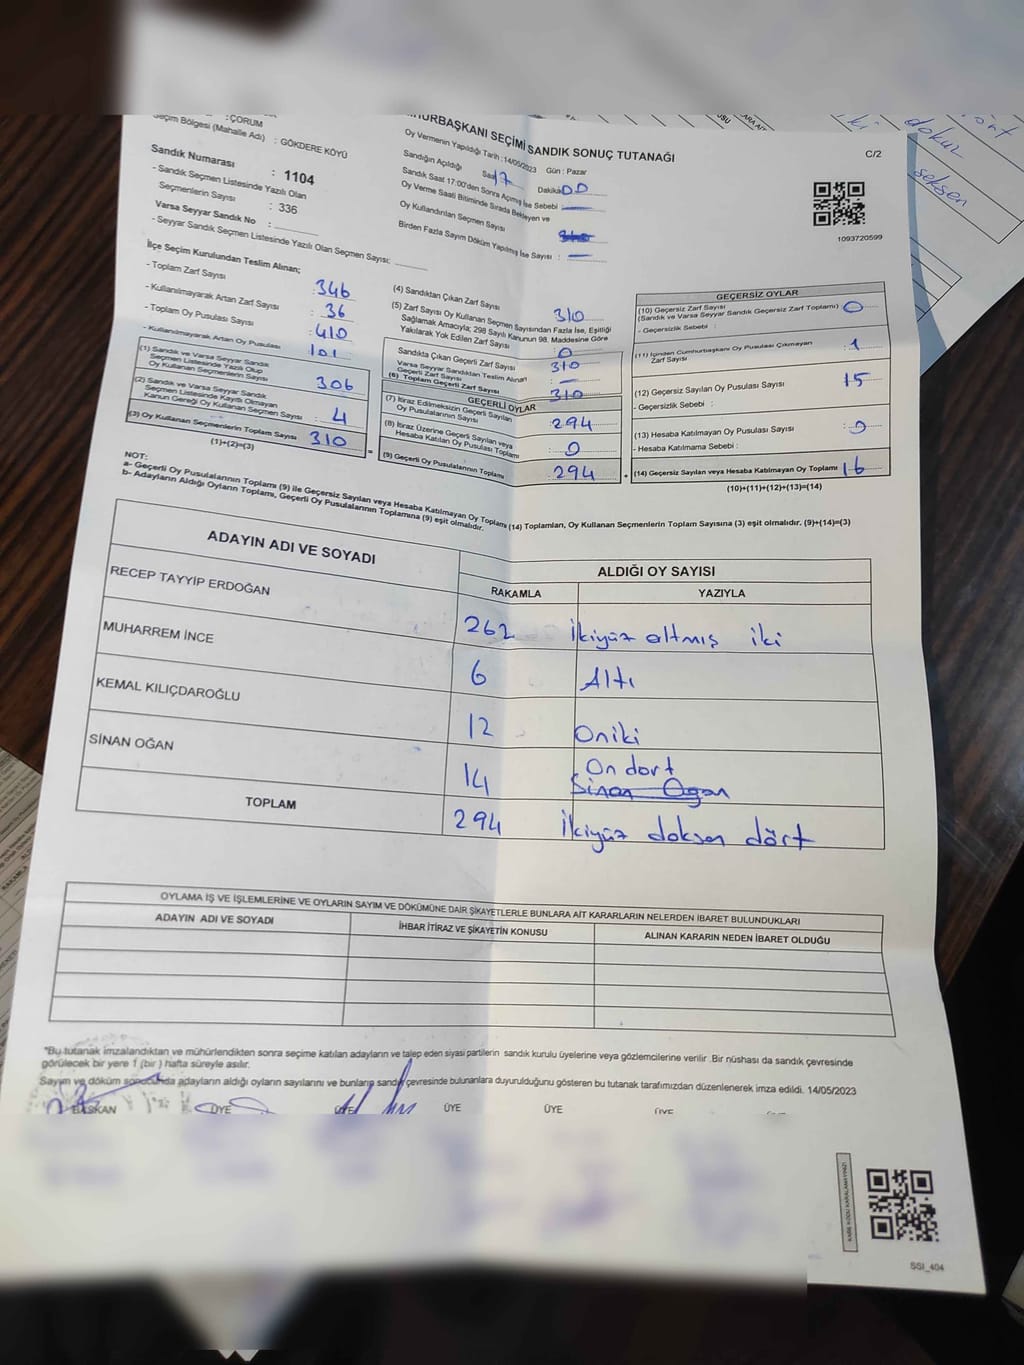 : ÇORUM
Seçim Bölgesi (Mahalle Adı) : GÖKDERE KÖYÜ
Sandık Numarası : 1104
- Sandık Seçmen Listesinde Yazılı Olan
Seçmenlerin Sayısı : 336
Varsa Seyyar Sandık No :
- Seyyar Sandık Seçmen Listesinde Yazılı Olan Seçmen Sayısı:
SEÇİMİ SANDIK SONUÇ TUTANAĞI
C/2
Oy Vermenin Yapıldığı Tarih : 14/05/2023 Gün : Pazar
Sandığın Açıldığı Saat 17 Dakika 00
Sandık Saat 17:00'den Sonra Açılmış İse Sebebi
Oy Verme Saati Bitiminde Sırada Bekleyen ve
Oy Kullandırılan Seçmen Sayısı
Birden Fazla Sayım Döküm Yapılmış İse Sayısı :
1093720599
İlçe Seçim Kurulundan Teslim Alınan;
- Toplam Zarf Sayısı : 346
- Kullanılmayarak Artan Zarf Sayısı : 36
- Toplam Oy Pusulası Sayısı : 410
- Kullanılmayarak Artan Oy Pusulası : 101
(1) Sandık ve Varsa Seyyar Sandık
Seçmen Listesinde Yazılı Olup
Oy Kullanan Seçmenlerin Sayısı : 306
(2) Sandık ve Varsa Seyyar Sandık
Seçmen Listesinde Kayıtlı Olmayan
Kanun Gereği Oy Kullanan Seçmen Sayısı : 4
(3) Oy Kullanan Seçmenlerin Toplam Sayısı : 310
(1)+(2)=(3)
(4) Sandıktan Çıkan Zarf Sayısı 310
(5) Zarf Sayısı Oy Kullanan Seçmen Sayısından Fazla İse, Eşitliği
Sağlamak Amacıyla; 298 Sayılı Kanunun 98. Maddesine Göre
Yakılarak Yok Edilen Zarf Sayısı : 0
Sandıkta Çıkan Geçerli Zarf Sayısı 310
Varsa Seyyar Sandıktan Teslim Alınan
Geçerli Zarf Sayısı
(6) Toplam Geçerli Zarf Sayısı 310
GEÇERLİ OYLAR
(7) İtiraz Edilmeksizin Geçerli Sayılan
Oy Pusulalarının Sayısı : 294
(8) İtiraz Üzerine Geçerli Sayılan veya
Hesaba Katılan Oy Pusulası Toplamı : 0
(9) Geçerli Oy Pusulalarının Toplamı : 294
GEÇERSİZ OYLAR
(10) Geçersiz Zarf Sayısı
(Sandık ve Varsa Seyyar Sandık Geçersiz Zarf Toplamı) : 0
- Geçersizlik Sebebi :
(11) İçinden Cumhurbaşkanı Oy Pusulası Çıkmayan
Zarf Sayısı : 1
(12) Geçersiz Sayılan Oy Pusulası Sayısı : 15
- Geçersizlik Sebebi :
(13) Hesaba Katılmayan Oy Pusulası Sayısı : 0
- Hesaba Katılmama Sebebi :
(14) Geçersiz Sayılan veya Hesaba Katılmayan Oy Toplamı : 16
(10)+(11)+(12)+(13)=(14)
NOT:
a- Geçerli Oy Pusulalarının Toplamı (9) ile Geçersiz Sayılan veya Hesaba Katılmayan Oy Toplamı (14) Toplamları, Oy Kullanan Seçmenlerin Toplam Sayısına (3) eşit olmalıdır. (9)+(14)=(3)
b- Adayların Aldığı Oyların Toplamı, Geçerli Oy Pusulalarının Toplamına (9) eşit olmalıdır.
ADAYIN ADI VE SOYADI
ALDIĞI OY SAYISI
RAKAMLA YAZIYLA
RECEP TAYYİP ERDOĞAN 262 İkiyüz altmış iki
MUHARREM İNCE 6 Altı
KEMAL KILIÇDAROĞLU 12 Oniki
SİNAN OĞAN 14 On dört
Sinan Ogan
TOPLAM 294 İkiyüz doksan dört
OYLAMA İŞ VE İŞLEMLERİNE VE OYLARIN SAYIM VE DÖKÜMÜNE DAİR ŞİKAYETLERLE BUNLARA AİT KARARLARIN NELERDEN İBARET BULUNDUKLARI
ADAYIN ADI VE SOYADI İHBAR İTİRAZ VE ŞİKAYETİN KONUSU ALINAN KARARIN NEDEN İBARET OLDUĞU
*Bu tutanak imzalandıktan ve mühürlendikten sonra seçime katılan adayların ve talep eden siyasi partilerin sandık kurulu üyelerine veya gözlemcilerine verilir. Bir nüshası da sandık çevresinde
görülecek bir yere 1 (bir) hafta süreyle asılır.
Sayım ve döküm sonucunda adayların aldığı oyların sayılarını ve bunların sandık çevresinde bulunanlara duyurulduğunu gösteren bu tutanak tarafımızdan düzenlenerek imza edildi. 14/05/2023
BAŞKAN ÜYE ÜYE ÜYE ÜYE
SSI_404
iki
dokuz
seksen